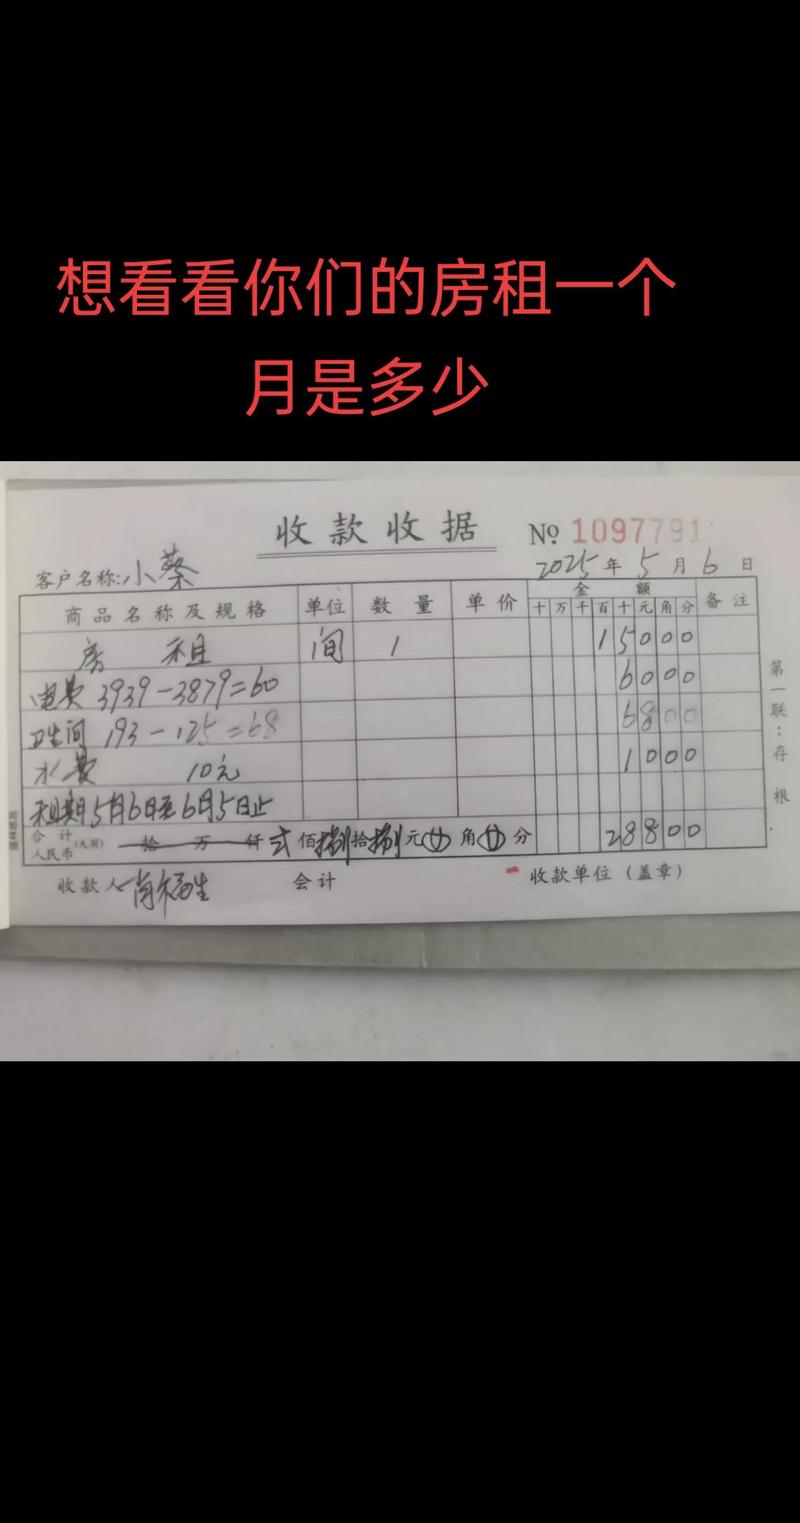 想看看你们的房租一个
月是多少
收款收据 № 1097791
客户名称:小蔡 2025年5月6日
商品名称及规格 单位 数量 单价 金额 十万千百十元角分 备注
房租 间 1 15000
电费 3939-3879=60 6000
卫生间 193-125=68 6800
水费 10元 1000
租期5月6日至6月5日止
合计人民币(大写) 拾 万 仟 弍佰捌拾捌元 角 分 28800
收款人 会计 收款单位(盖章)
第一联:存根